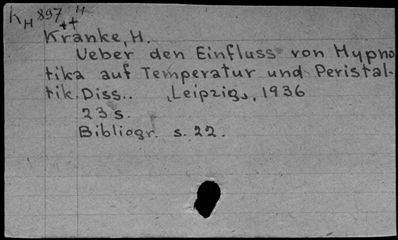 KH 897 H
++
Kranke, H.
Ueber den Einfluss von Hypno
tika auf Temperatur und Peristal-
tik. Diss.. Leipzig, 1936
23 s.
Bibliogr. s. 22.